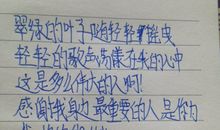 翠绿的叶子啊轻轻摇曳
轻轻的歌声荡漾在我的心中
这是多么伟大的人啊!
感谢我身边最重要的人是你为